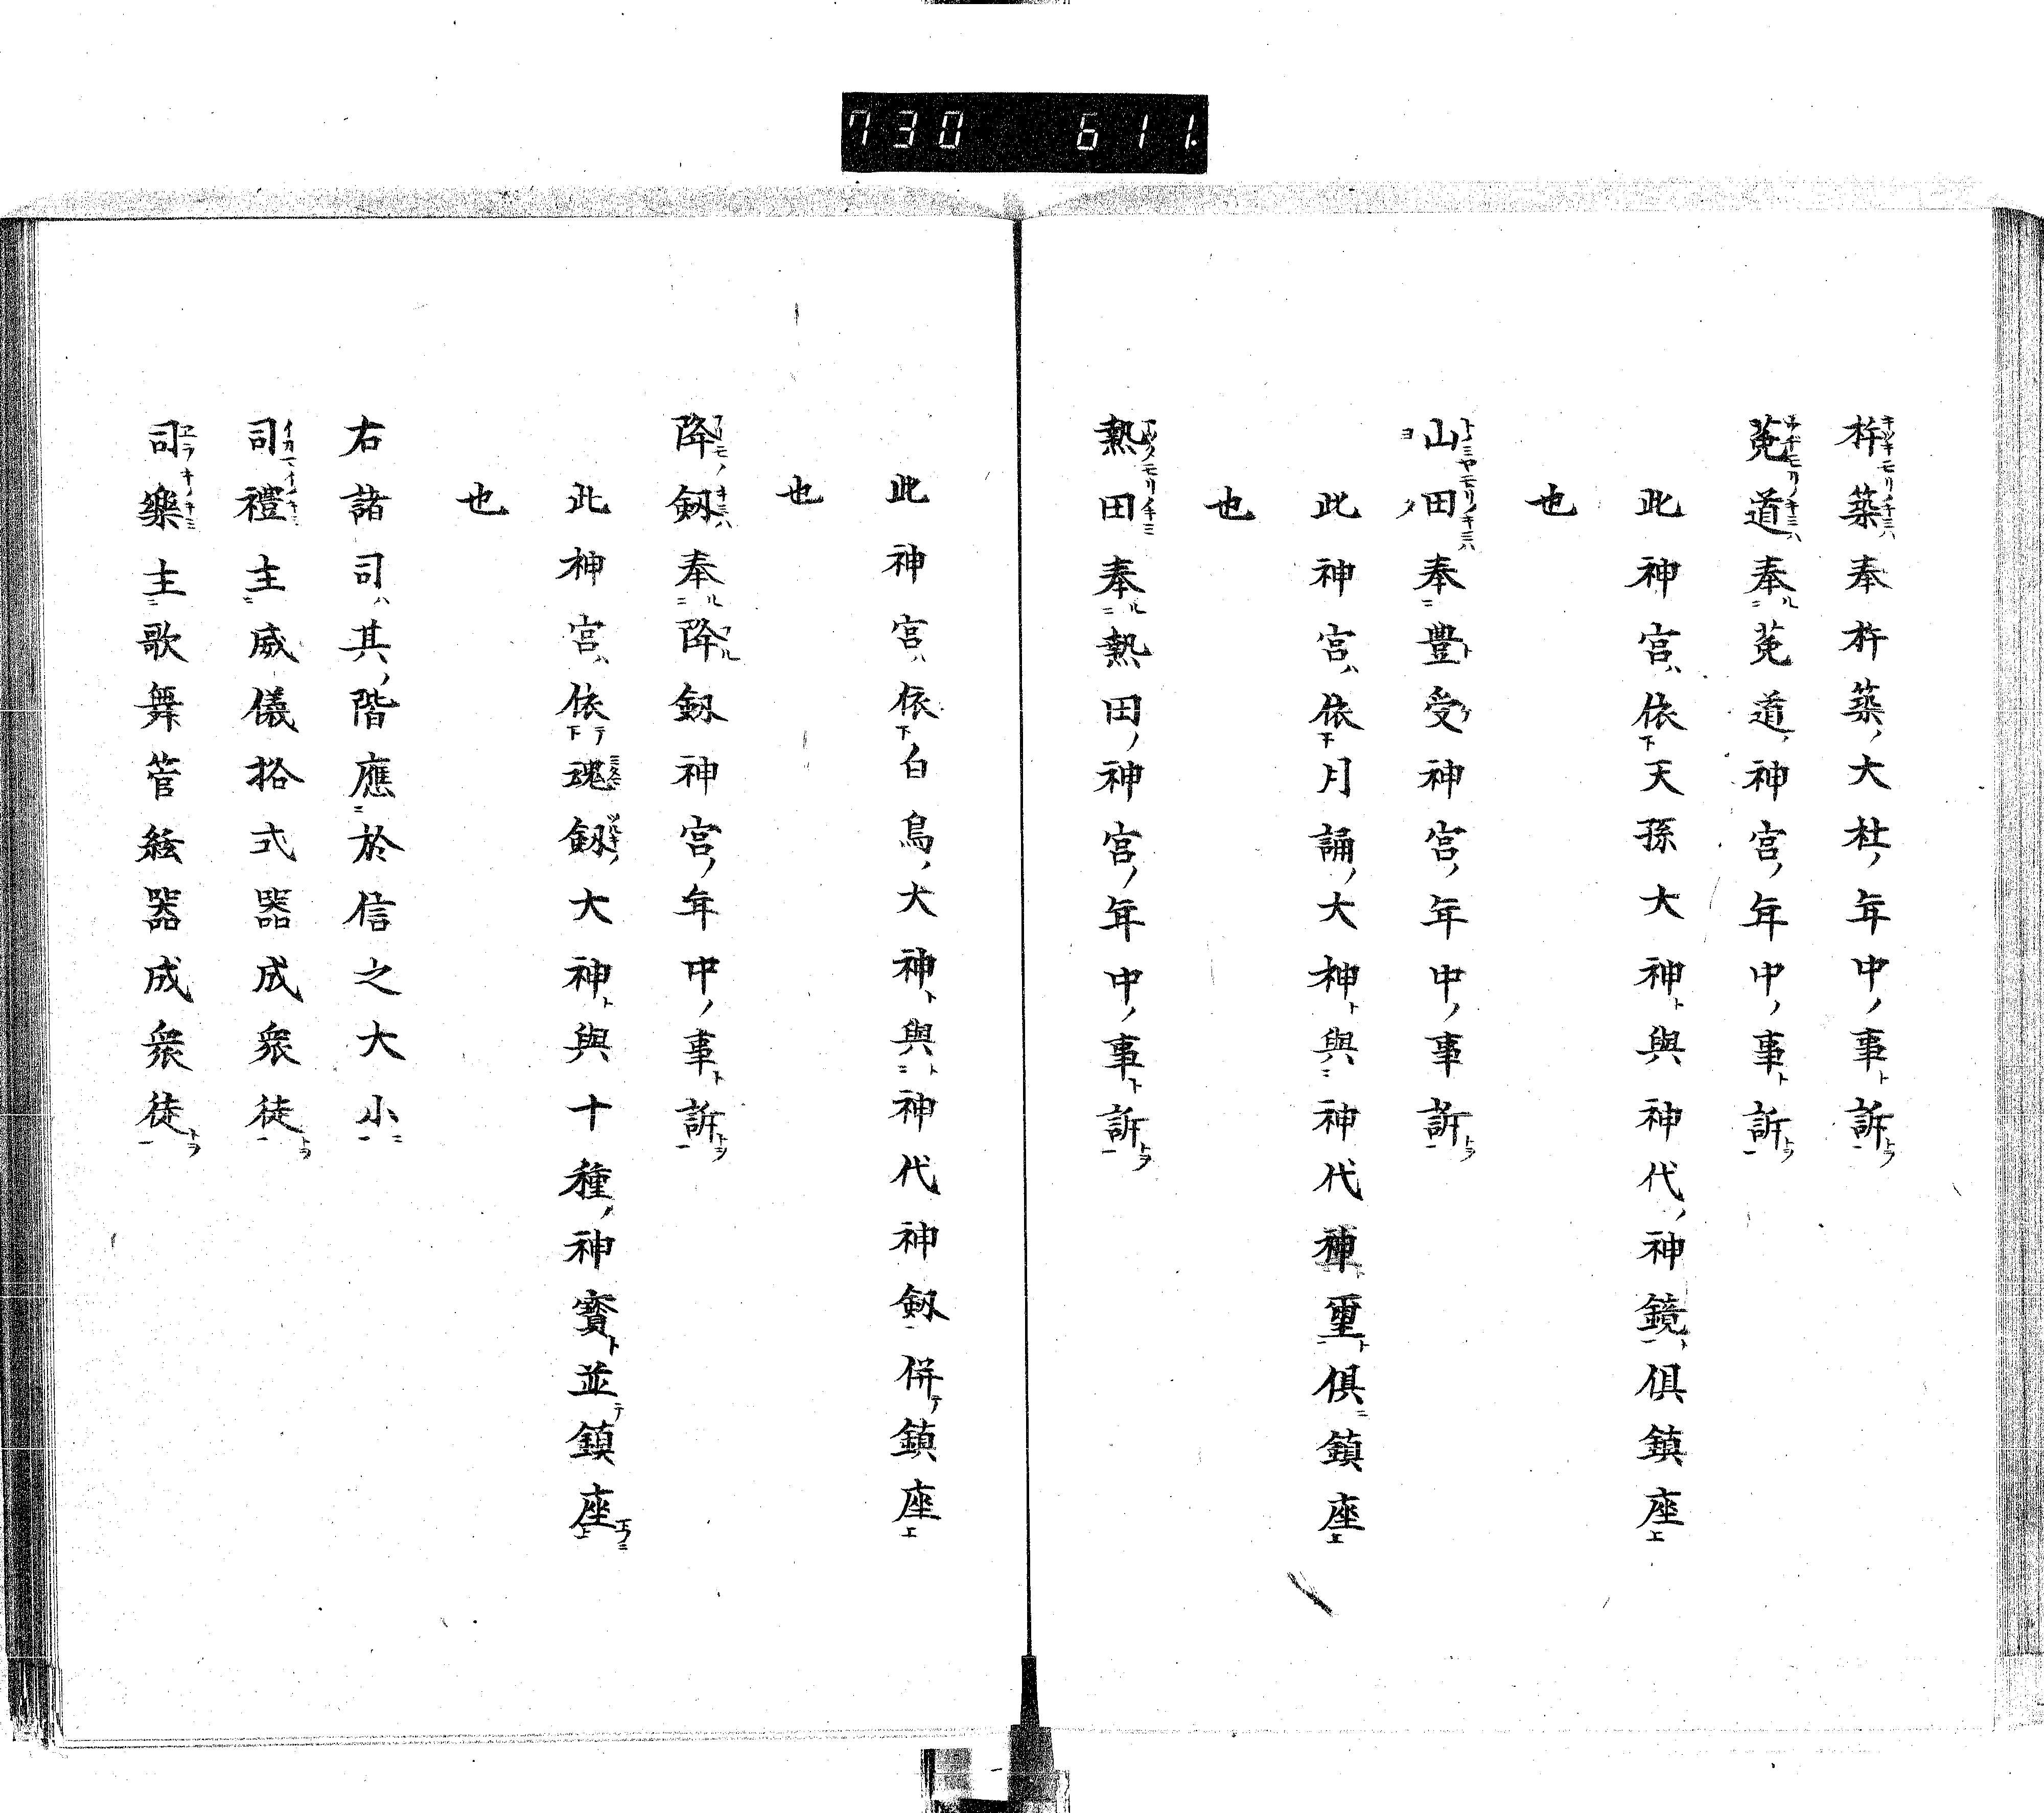 730 611
杵築奉杵築ノ大社ノ年中ノ事ト訴トヲ
菟道奉ル菟道ノ神宮ノ年中ノ事ト訴トヲ
此神宮ハ依天孫大神ト與神代ノ神鏡ト倶鎮座
也
山田奉豊受神宮ノ年中ノ事訴トヲ
此神宮ハ依月誦ノ大神ト與神代神璽ト倶ニ鎮座
也
熱田奉ル熱田ノ神宮ノ年中ノ事ト訴トヲ
此神宮ハ依白鳥ノ大神ト與神代神釼併テ鎮座
也
降釼奉ル降ル釼神宮ノ年中ノ事ト訴トヲ
此神宮ハ依テ魂釼ノ大神ト與十種ノ神寳ト並テ鎮座
也
右諸司ハ其ノ階應於信之大小ニ
司禮主威儀拾式器成衆徒トヲ
司樂主歌舞管絃器成衆徒トヲ